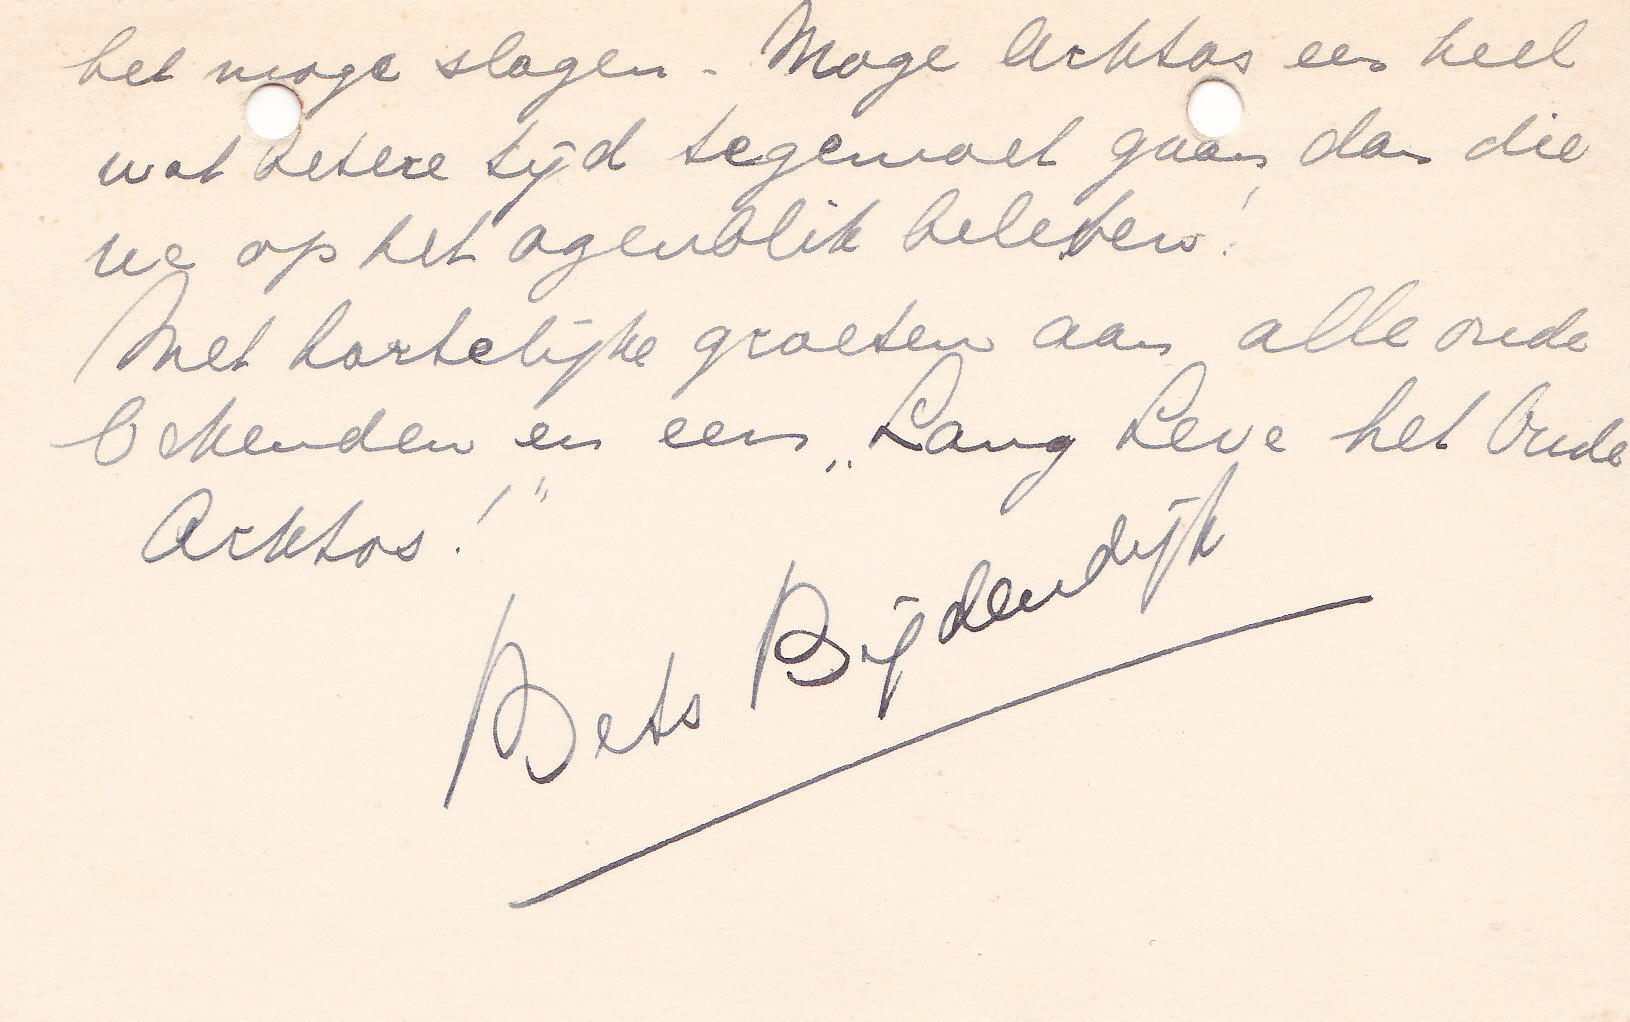 het moge slagen. Moge Arktos een heel
wat betere tijd tegemoet gaan dan die
we op het ogenblik beleven!
Met hartelijke groeten aan alle oude
bekenden en een „Lang Leve het Oude
Arktos!"
Bets Bijdendijk